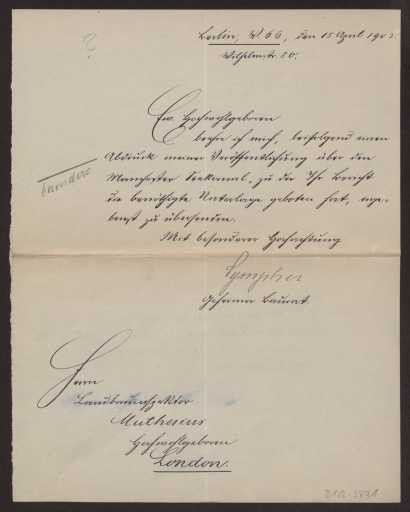 ?
Berlin, W. 66, den 15 April 190
Wilhelmstr. 80.
Ew. Hochwohlgeboren
beehre ich mich, beifolgend einen
Abdruck meiner Veröffentlichung über den
Manchester Seekanal, zu der Ihr Bericht
die benöthigte Unterlage geboten hat, erge-
benst zu übersenden.
Mit besonderer Hochachtung
Sympher
Geheimer Baurat.
Herrn
Landbauinspektor
Muthesius
Hochwohlgeboren
London.